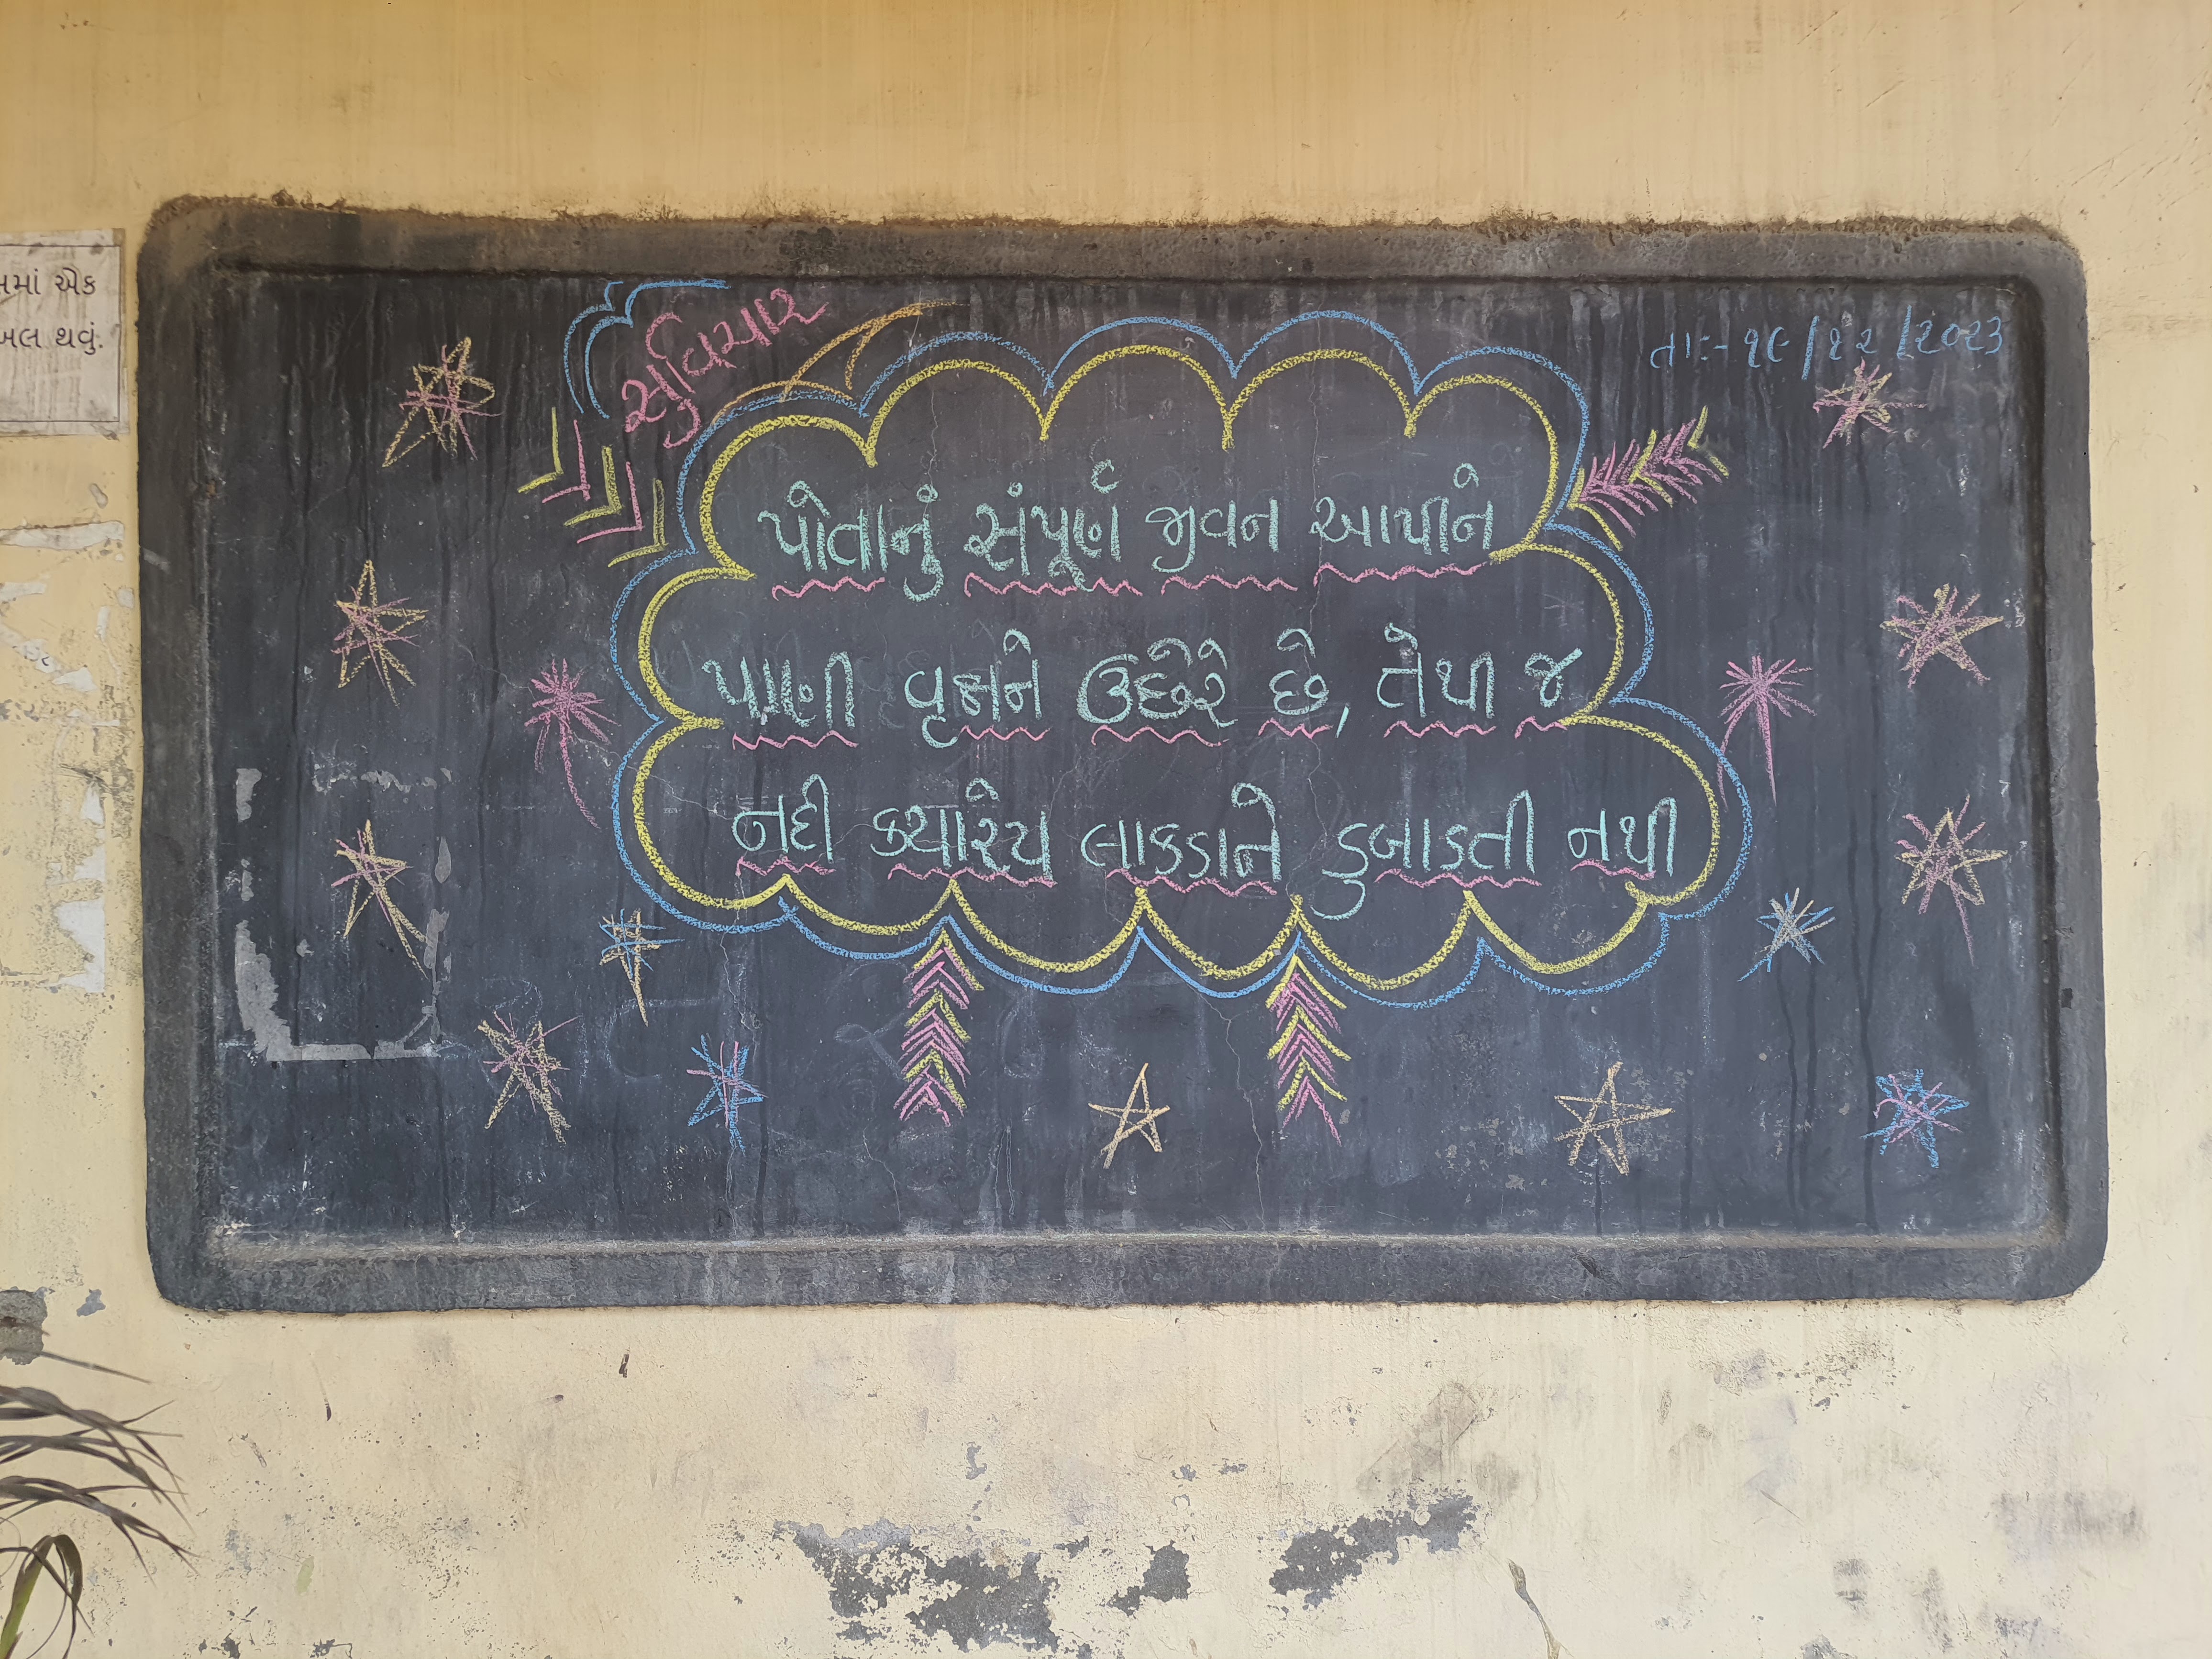 સુવિચાર
તા:-૧૯/૧૨/૨૦૨૩
પોતાનું સંપૂર્ણ જીવન આપીને
પાણી વૃક્ષને ઉછેરે છે, તેથી જ
નદી ક્યારેય લાકડાને ડુબાડતી નથી
એક
થવું.